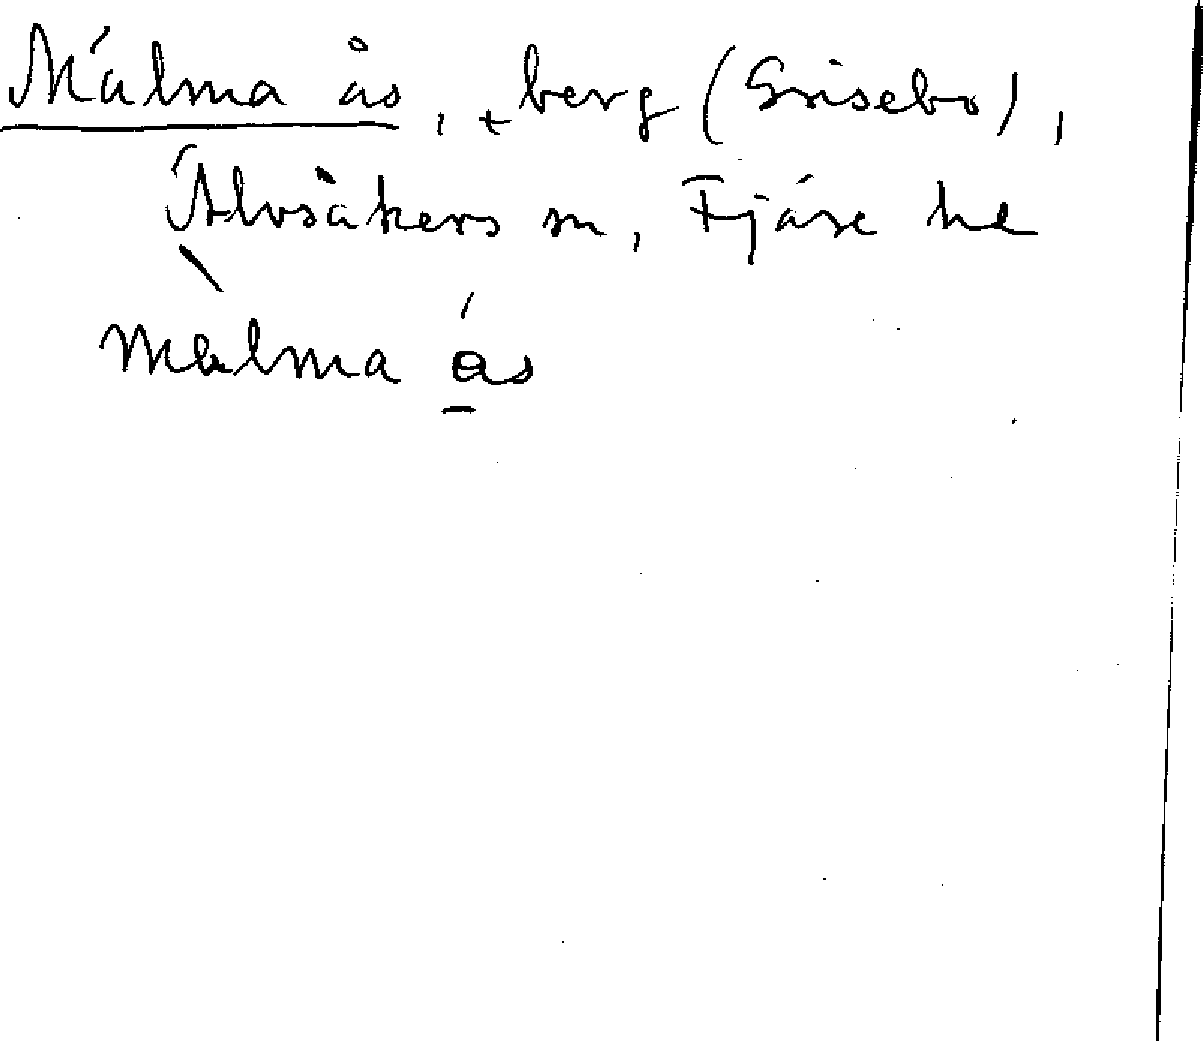 Målma ås, + berg (Grisebo),
Älvsåkers sn, Fjäre hd
màlma ás